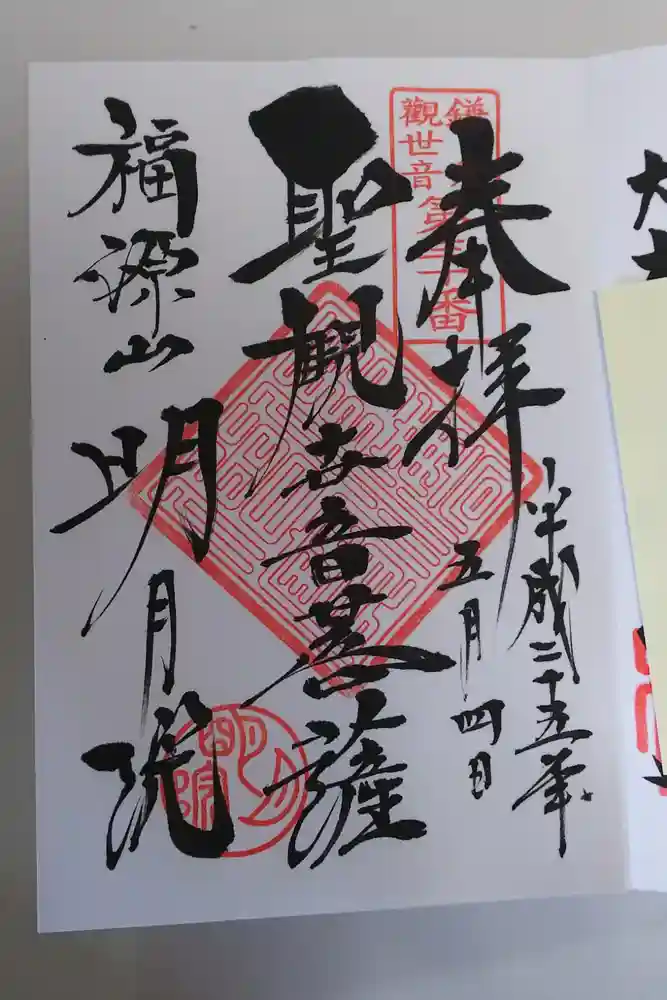 奉拝
平成二十五年
五月四日
鎌
觀世音第三十番
聖観世音菩薩
福源山
明月院
明月院